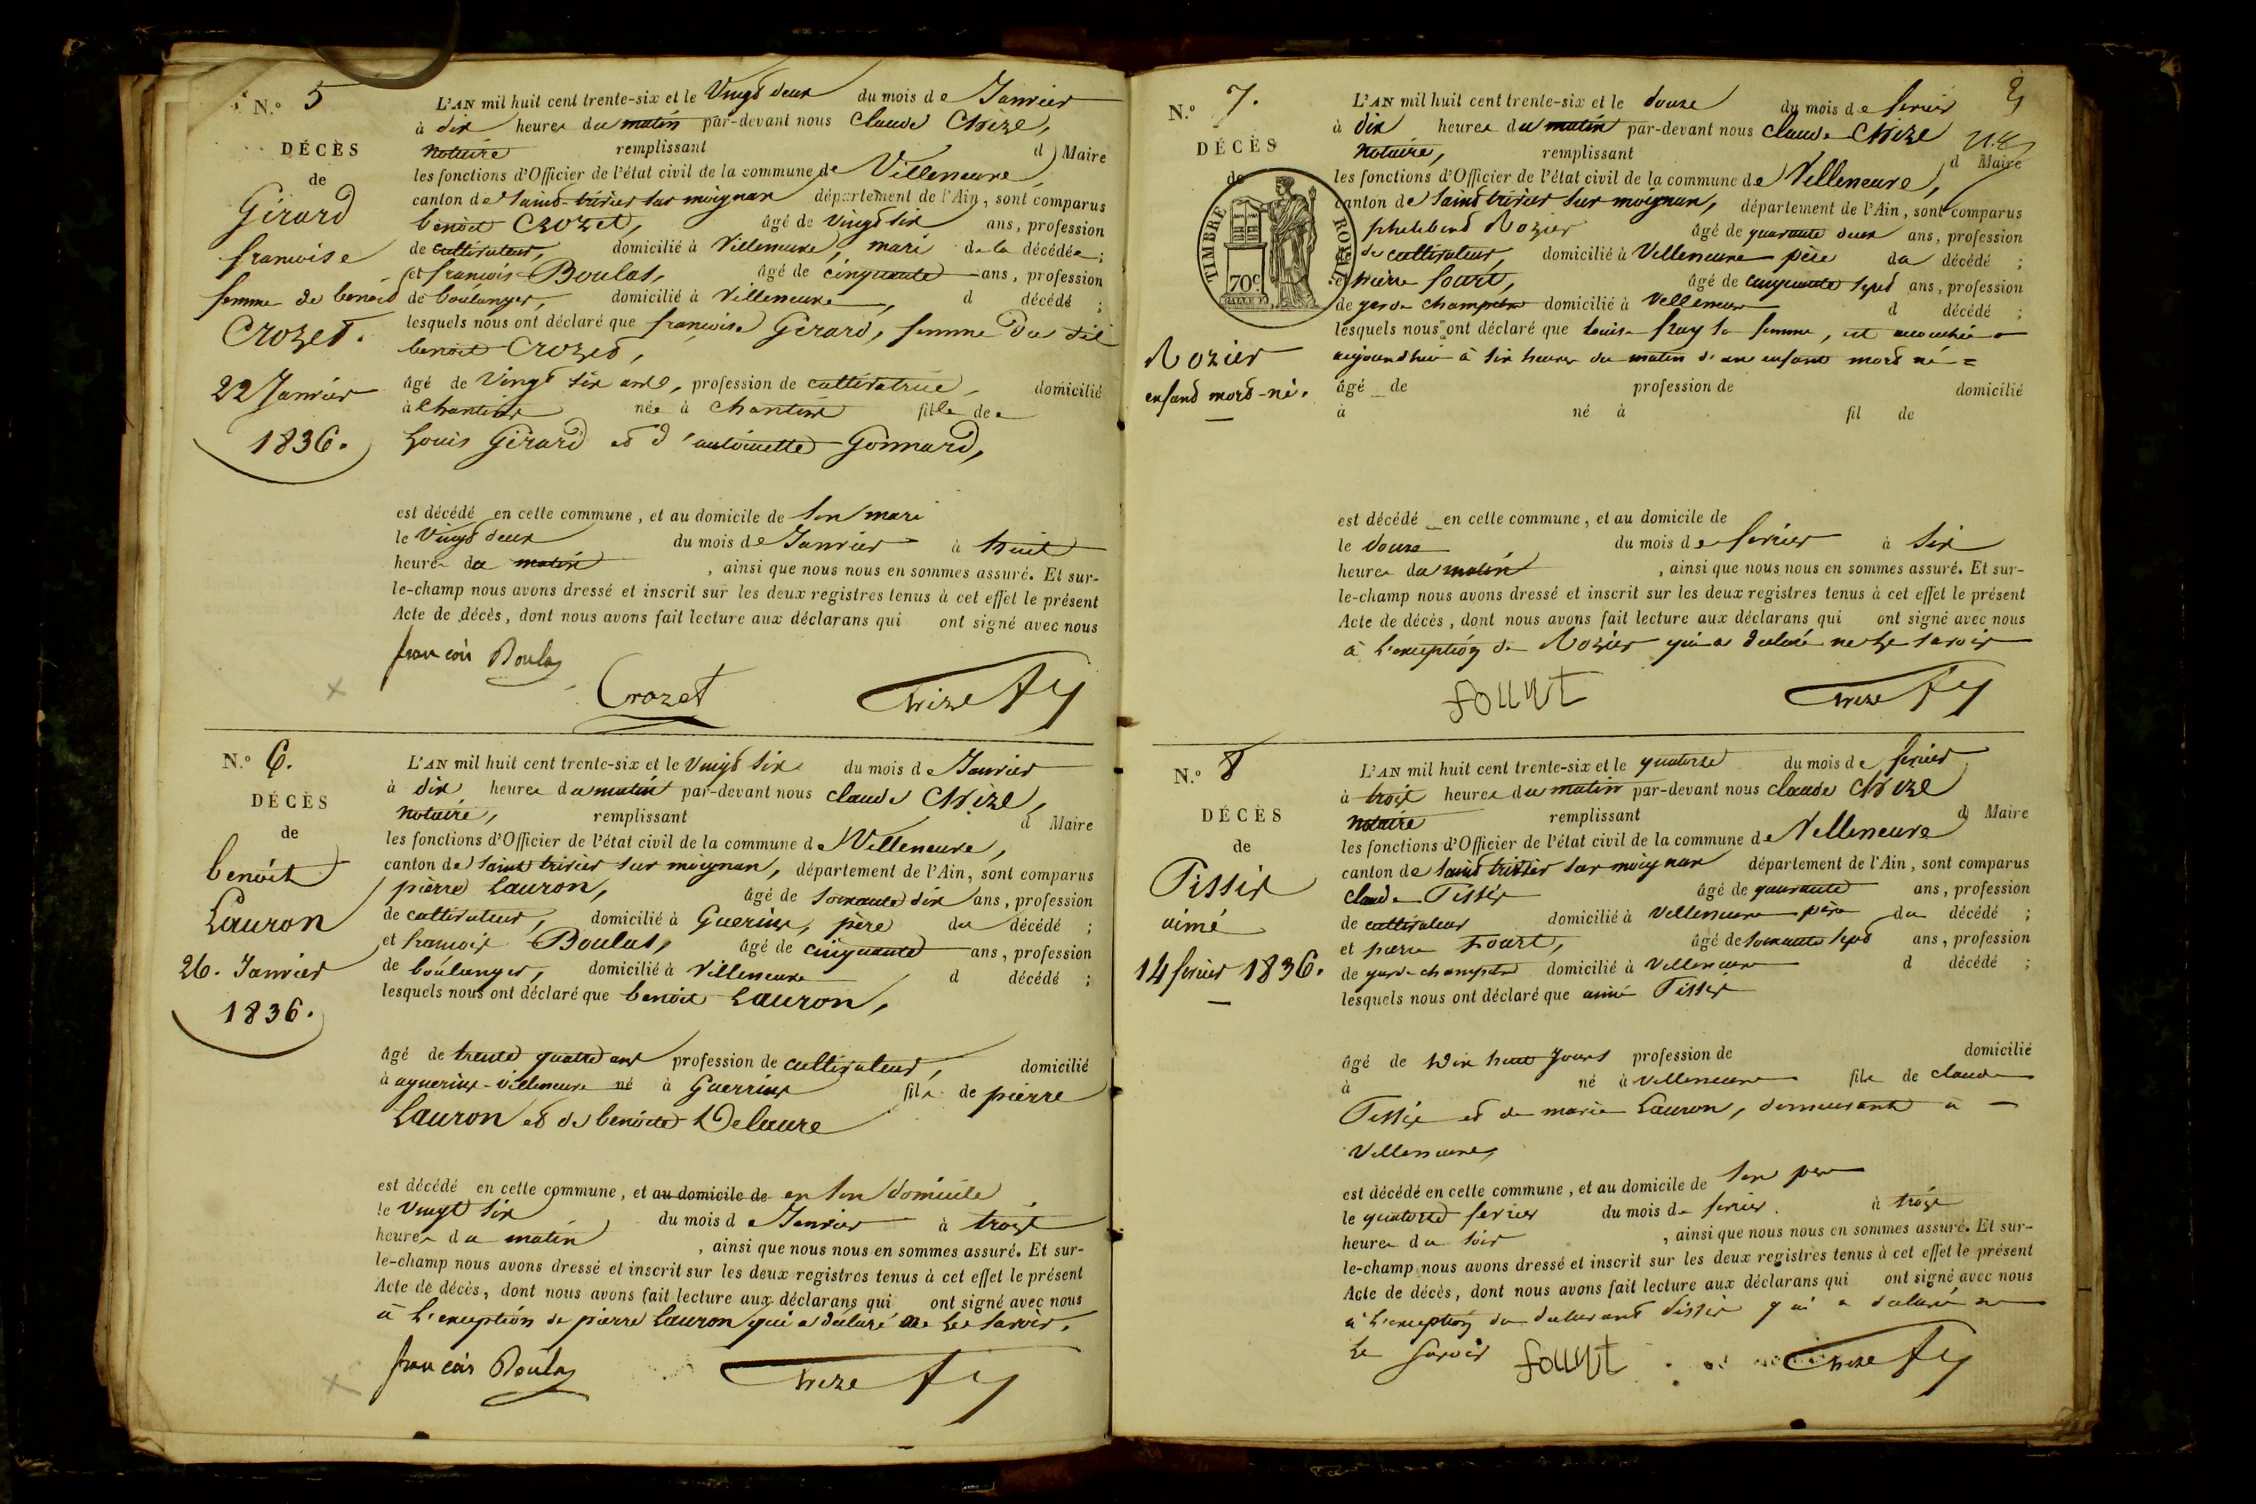 N.o 5
DÉCÈS
de
Girard
francoise
femme de benoit
Crozet.
22 Janvier
1836.
L'AN mil huit cent trente-six et le Vingt deux du mois de Janvier
à dix heures du matin par-devant nous Claude Chize,
notaire remplissant d Maire
les fonctions d'Officier de l'état civil de la commune de Villeneuve,
canton de Saint trivier sur moignan département de l'Ain, sont comparus
benoit Crozet, âgé de vingt six ans, profession
de cultivateur, domicilié à Villeneuve, mari de la décédée;
et francois Boulas, âgé de cinquante ans, profession
de boulanger, domicilié à Villeneuve, d décédé ;
lesquels nous ont déclaré que francoise Girard, femme du dit
benoit Crozet,
âgé de Vingt six ans, profession de cultivatrice, domicilié
à Chantins née à Chantins fille de
Louis Girard et d'antoinette Gonnard,
est décédé en cette commune, et au domicile de son mari
le Vingt deux du mois de Janvier à huit
heures du matin , ainsi que nous nous en sommes assuré. Et sur-
le-champ nous avons dressé et inscrit sur les deux registres tenus à cet effet le présent
Acte de décès, dont nous avons fait lecture aux déclarans qui ont signé avec nous
francois Boulas
Crozet Chize
N.o 6.
DÉCÈS
de
benoit
Lauron
26. Janvier
1836.
L'AN mil huit cent trente-six et le Vingt six du mois de Janvier
à dix heures du matin par-devant nous claude Chize,
notaire, remplissant d Maire
les fonctions d'Officier de l'état civil de la commune de Villeneuve,
canton de Saint trivier sur moignan, département de l'Ain, sont comparus
pierre Lauron, âgé de soixante dix ans, profession
de cultivateur, domicilié à Guerins, père du décédé ;
et francois Boulas, âgé de cinquante ans, profession
de boulanger, domicilié à Villeneuve d décédé ;
lesquels nous ont déclaré que benoit Lauron,
âgé de trente quatre ans profession de cultivateur, domicilié
à aguerins-villeneuve né à Guerrins fils de pierre
Lauron et de benoite Delaure
est décédé en cette commune, et au domicile de en son domicile
le Vingt six du mois de Janvier à trois
heures du matin , ainsi que nous nous en sommes assuré. Et sur-
le-champ nous avons dressé et inscrit sur les deux registres tenus à cet effet le présent
Acte de décès, dont nous avons fait lecture aux déclarans qui ont signé avec nous
à l'exception de pierre Lauron qui a déclaré ne le savoir.
francois Boulas Chize
N.o 7.
DÉCÈS
de
TIMBRE ROYAL
70c
Rozier
enfant mort-né.
L'AN mil huit cent trente-six et le douze du mois de fevrier
à dix heures du matin par-devant nous claude Chize
notaire, remplissant d Maire
les fonctions d'Officier de l'état civil de la commune de Villeneuve,
canton de Saint trivier sur moignan, département de l'Ain, sont comparus
philibert Rozier âgé de quarante deux ans, profession
de cultivateur, domicilié à Villeneuve père du décédé ;
et pierre fourt, âgé de cinquante sept ans, profession
de garde champetre domicilié à Villeneuve d décédé ;
lesquels nous ont déclaré que louise fray sa femme, est accouchée
aujourdhui à six heures du matin d'un enfant mort né =
âgé de profession de domicilié
à né à fil de
est décédé en cette commune, et au domicile de
le douze du mois de fevrier à six
heures du matin , ainsi que nous nous en sommes assuré. Et sur-
le-champ nous avons dressé et inscrit sur les deux registres tenus à cet effet le présent
Acte de décès, dont nous avons fait lecture aux déclarans qui ont signé avec nous
à l'exception de Rozier qui a déclaré ne le savoir
fourt Chize
N.o 8
DÉCÈS
de
Tissix
aimé
14 fevrier 1836.
L'AN mil huit cent trente-six et le quatorze du mois de fevrier
à trois heures du matin par-devant nous claude Chize
notaire remplissant d Maire
les fonctions d'Officier de l'état civil de la commune de Villeneuve
canton de Saint trivier sur moignan département de l'Ain, sont comparus
claude Tissix âgé de quarante ans, profession
de cultivateur domicilié à Villeneuve père du décédé ;
et pierre fourt, âgé de soixante sept ans, profession
de garde-champetre domicilié à Villeneuve d décédé ;
lesquels nous ont déclaré que aimé Tissix
âgé de Dix huit Jours profession de domicilié
à né à Villeneuve fils de claude
Tissix et de marie Lauron, demeurant à
Villeneuve,
est décédé en cette commune, et au domicile de son père
le quatorze fevrier du mois de fevrier à trois
heures du soir , ainsi que nous nous en sommes assuré. Et sur-
le-champ nous avons dressé et inscrit sur les deux registres tenus à cet effet le présent
Acte de décès, dont nous avons fait lecture aux déclarans qui ont signé avec nous
à l'exception du déclarant Tissix qui a déclaré ne
le savoir fourt Chize